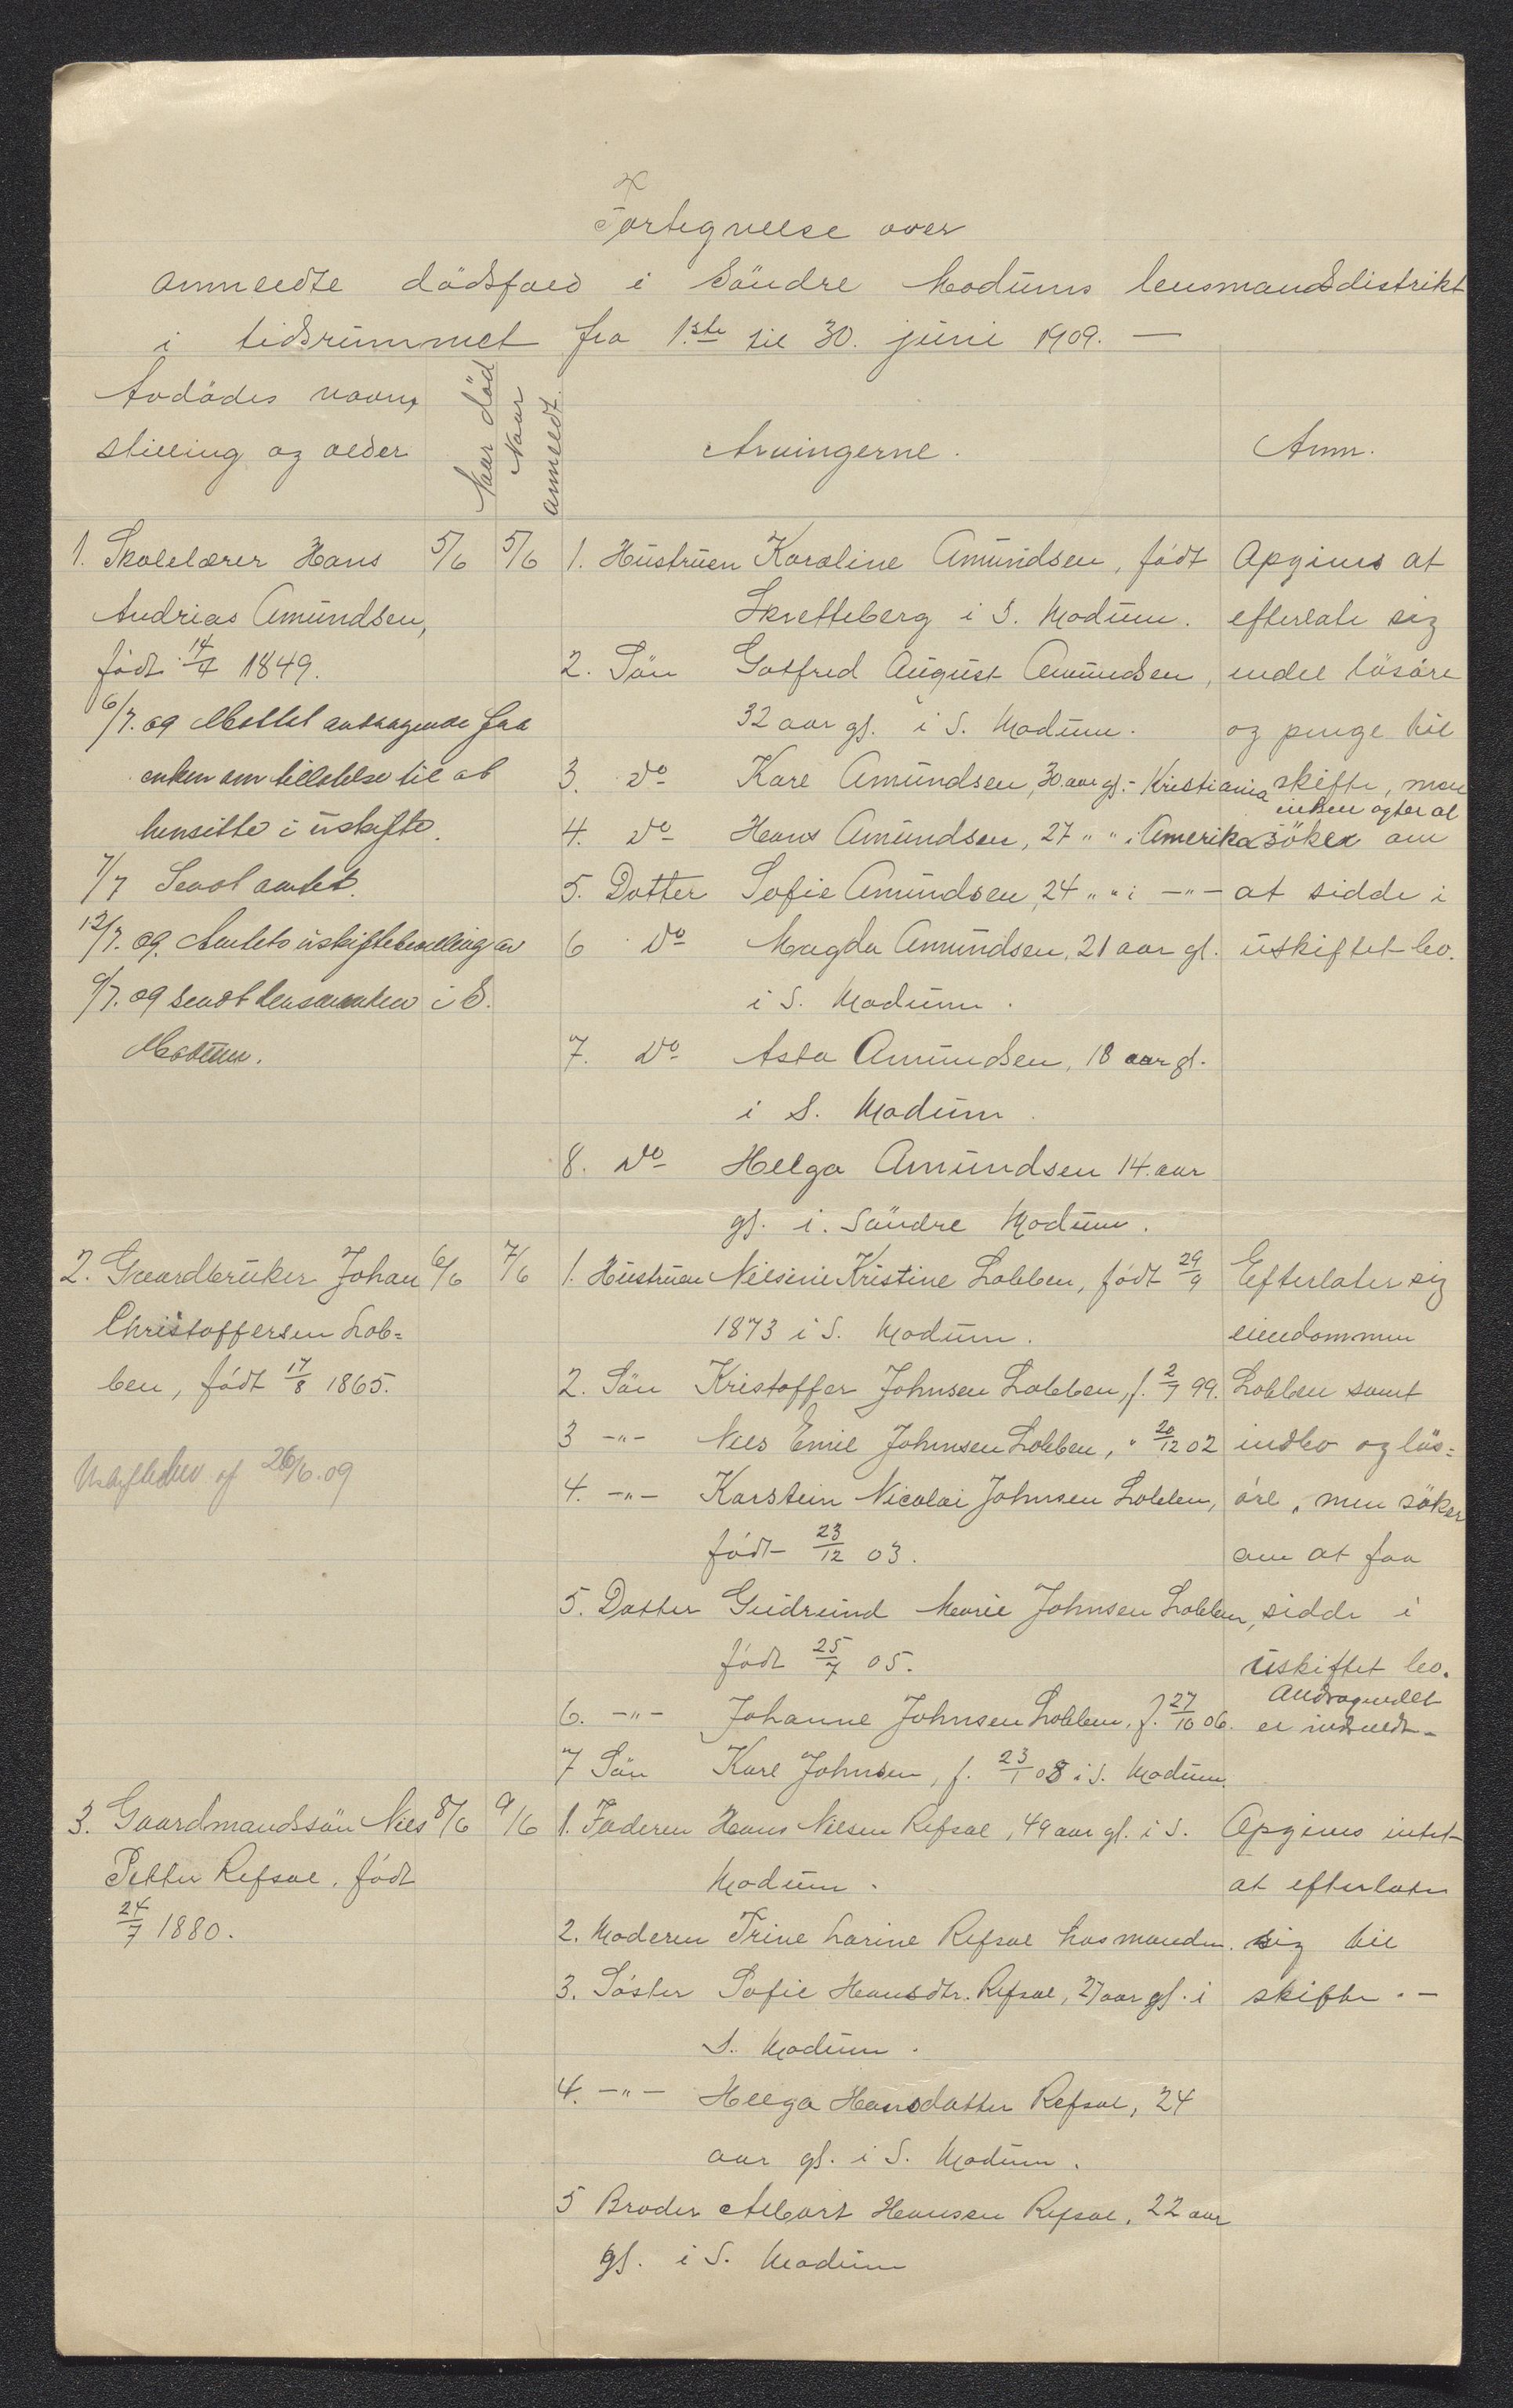 Fortegnelse over
anmeldte dödsfald i Söndre Modums lensmandsdistrikt
i tidsrummet fra 1.ste til 30. juni 1909. —
Avdödes navn,
stilling og alder
Naar död
Naar
anmeldt.
Arvingerne.
Anm.
1. Skolelærer Hans
Andrias Amundsen,
födt 14/7 1849.
6/7.09 Mottat andragende fra
enken om tilladelse til at
hensitte i uskifte.
7/7 Sendt amtet.
12/7.09. Amtets uskiftebevilling av
9/7.09 sendt lensmanden i S.
Modum.
5/6
5/6
1. Hustruen Karoline Amundsen, födt
Skretteberg i S. Modum.
2. Sön Gotfred August Amundsen,
32 aar gl. i S. Modum.
3. do Kare Amundsen, 30 aar gl. - Kristiania
4. do Hans Amundsen, 27 " " i Amerika
5. Datter Sofie Amundsen, 24 " " i —"—
6 do Magda Amundsen, 21 aar gl.
i S. Modum.
7. do Asta Amundsen, 18 aar gl.
i S. Modum.
8. do Helga Amundsen 14. aar
gl. i. Söndre Modum.
Opgives at
efterlate sig
endel lösöre
og penge til
skifte, men
enken agter at
söker om
at sidde i
uskiftet bo.
2. Gaardbruker Johan
Christoffersen Lob=
ben, födt 17/8 1865.
Uskiftebev af 26/6.09
6/6
7/6
1. Hustruen Nilsine Kristine Lobben, födt 29/9
1873 i S. Modum.
2. Sön Kristoffer Johnsen Lobben, f. 2/7 99.
3 —"— Nils Emil Johnsen Lobben, " 20/12 02
4. —"— Karstein Nicolai Johnsen Lobben,
födt 23/12 03.
5. Datter Gudrund Marie Johnsen Lobben,
födt 25/7 05.
6. —"— Johanne Johnsen Lobben, f. 27/10 06.
7 Sön Karl Johnsen, f. 23/1 08 i S. Modum.
Efterlater sig
eiendommen
Lobben samt
indbo og lös=
öre, men söker
om at faa
sidde i
uskiftet bo.
Andragendet
er indsendt-
3. Gaardmandssön Nils
Petter Refsal, födt
24/7 1880.
8/6
9/6
1. Faderen Hans Nilsen Refsal, 49 aar gl. i S.
Modum.
2. Moderen Trine Larine Refsal hos manden.
3. Söster Sofie Hansdtr. Refsal, 27 aar gl. i
S. Modum.
4. —"— Helga Hansdatter Refsal, 24
aar gl. i S. Modum.
5 Broder Albart Hansen Refsal, 22 aar
gl. i S. Modum
Opgives intet
at efterlate
sig til
skifte. —